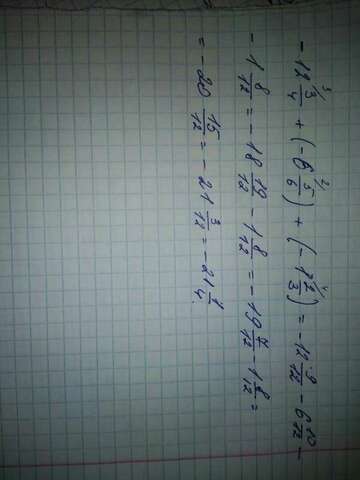 - 12 ³⁄ 3/4 + (- 6 ²⁄ 5/6) + (- 1 ⁴⁄ 2/3) = - 12 9/12 - 6 10/12 -
- 1 8/12 = - 18 19/12 - 1 8/12 = - 19 7/12 - 1 8/12 =
= - 20 15/12 = - 21 3/12 = - 21 1/4.